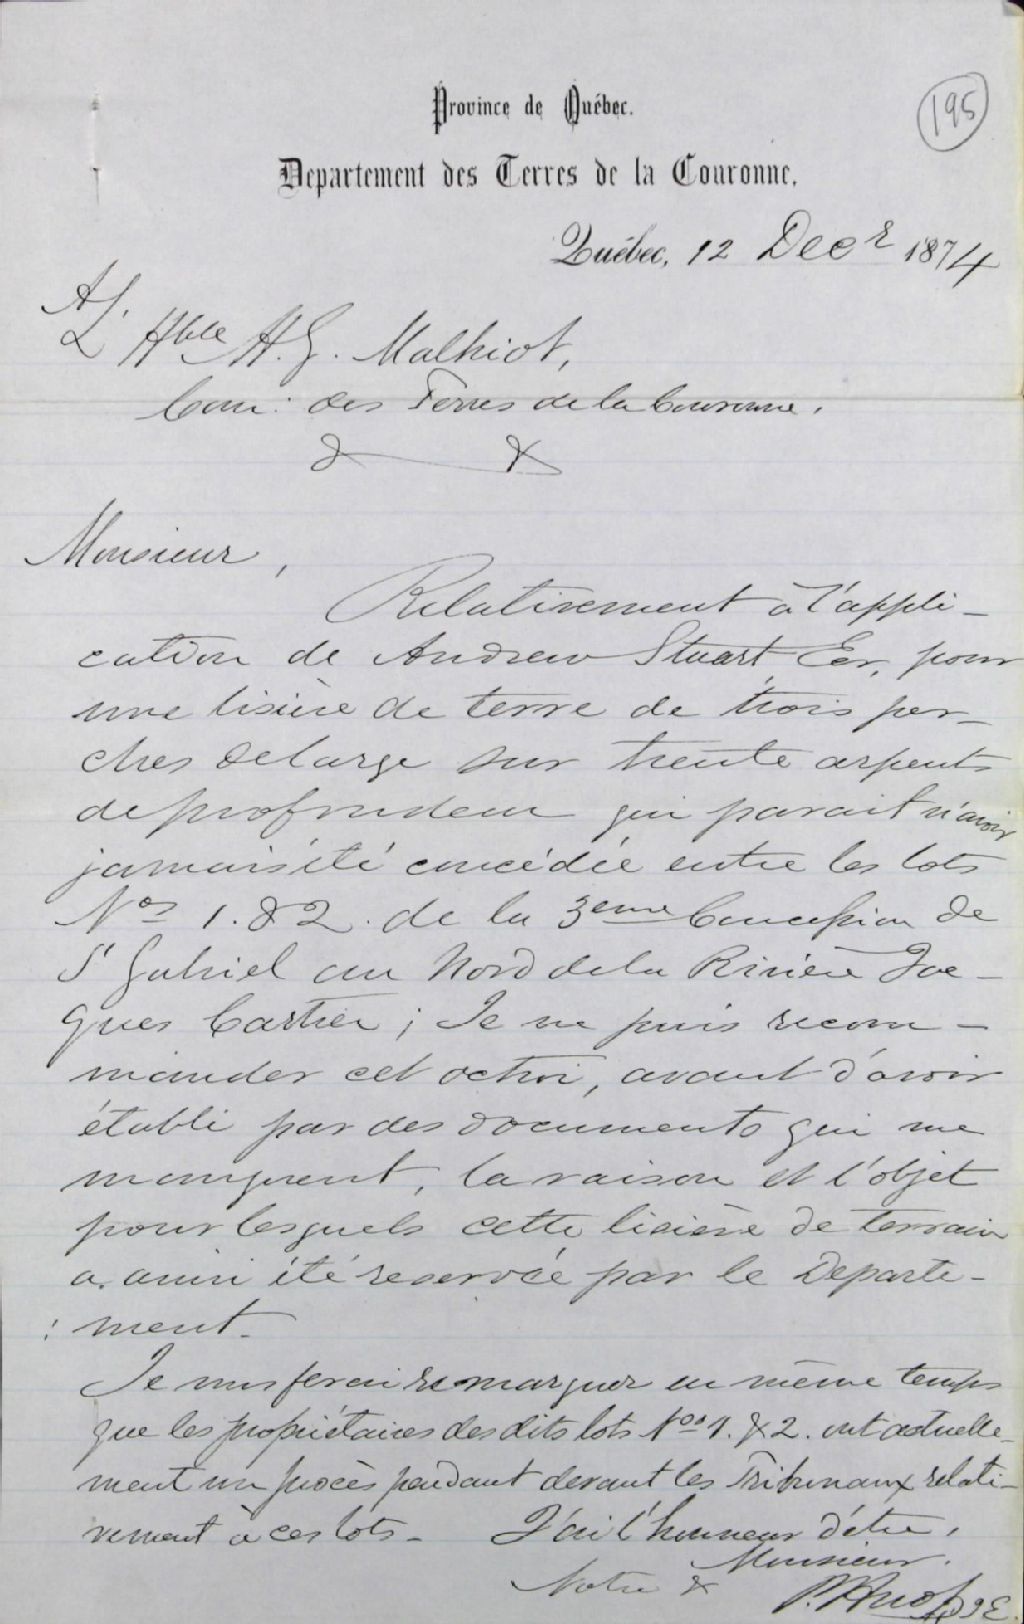 195
Province de Québec.
Departement des Terres de la Couronne.
Québec, 12 Decr 1874
A
L'Hble H. G. Malhiot,
Com: des Terres de la Couronne.
& &
Monsieur,
Relativement à l'appli-
cation de Andrew Stuart, Ecr, pour
une lisière de terre de trois per-
ches de large sur trente arpents
de profondeur qui parait n'avoir
jamais été concédée entre les lots
Nos 1. & 2. de la 3eme Concession de
St Gabriel au Nord de la Rivière Jac-
ques Cartier; Je ne puis recom-
mander cet octroi, avant d'avoir
établi par des documents qui me
manquent, la raison et l'objet
pour lesquels cette lisière de terrain
a ainsi été reservée par le Departe-
: ment.
Je vous ferai remarquer en même temps
que les propriétaires des dits lots Nos 1. & 2. ont actuelle-
ment un procès pendant devant les Tribunaux relati-
vement à ces lots. J'ai l'honneur d'être,
Monsieur.
Votre &